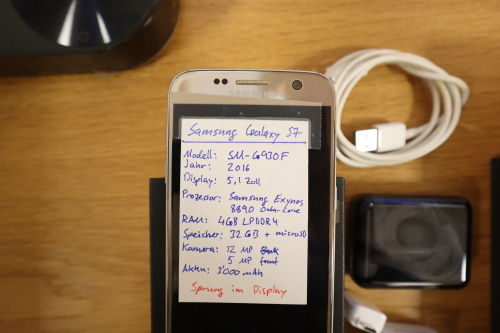 Samsung Galaxy S7
Modell: SM-G930F
Jahr: 2016
Display: 5,1 Zoll
Prozessor: Samsung Exynos
8890 Octa-Core
RAM: 4GB LPDDR4
Speicher: 32GB + microSD
Kamera: 12 MP
5 MP front
Akku: 3'000 mAh
Sprung im Display